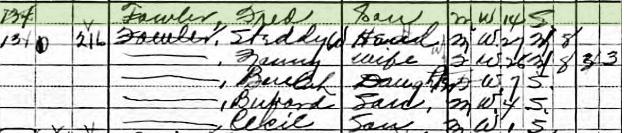 134 Fowler, Fred Son M W 14 S
134 0 216 Fowler, Steddy W Head M W 27 M 8
———, Fanny Wife F W 26 M 8 3 3
———, Beulah Daughter F W 7 S
———, Buford Son M W 4 S
———, Cecil Son M W 1 S